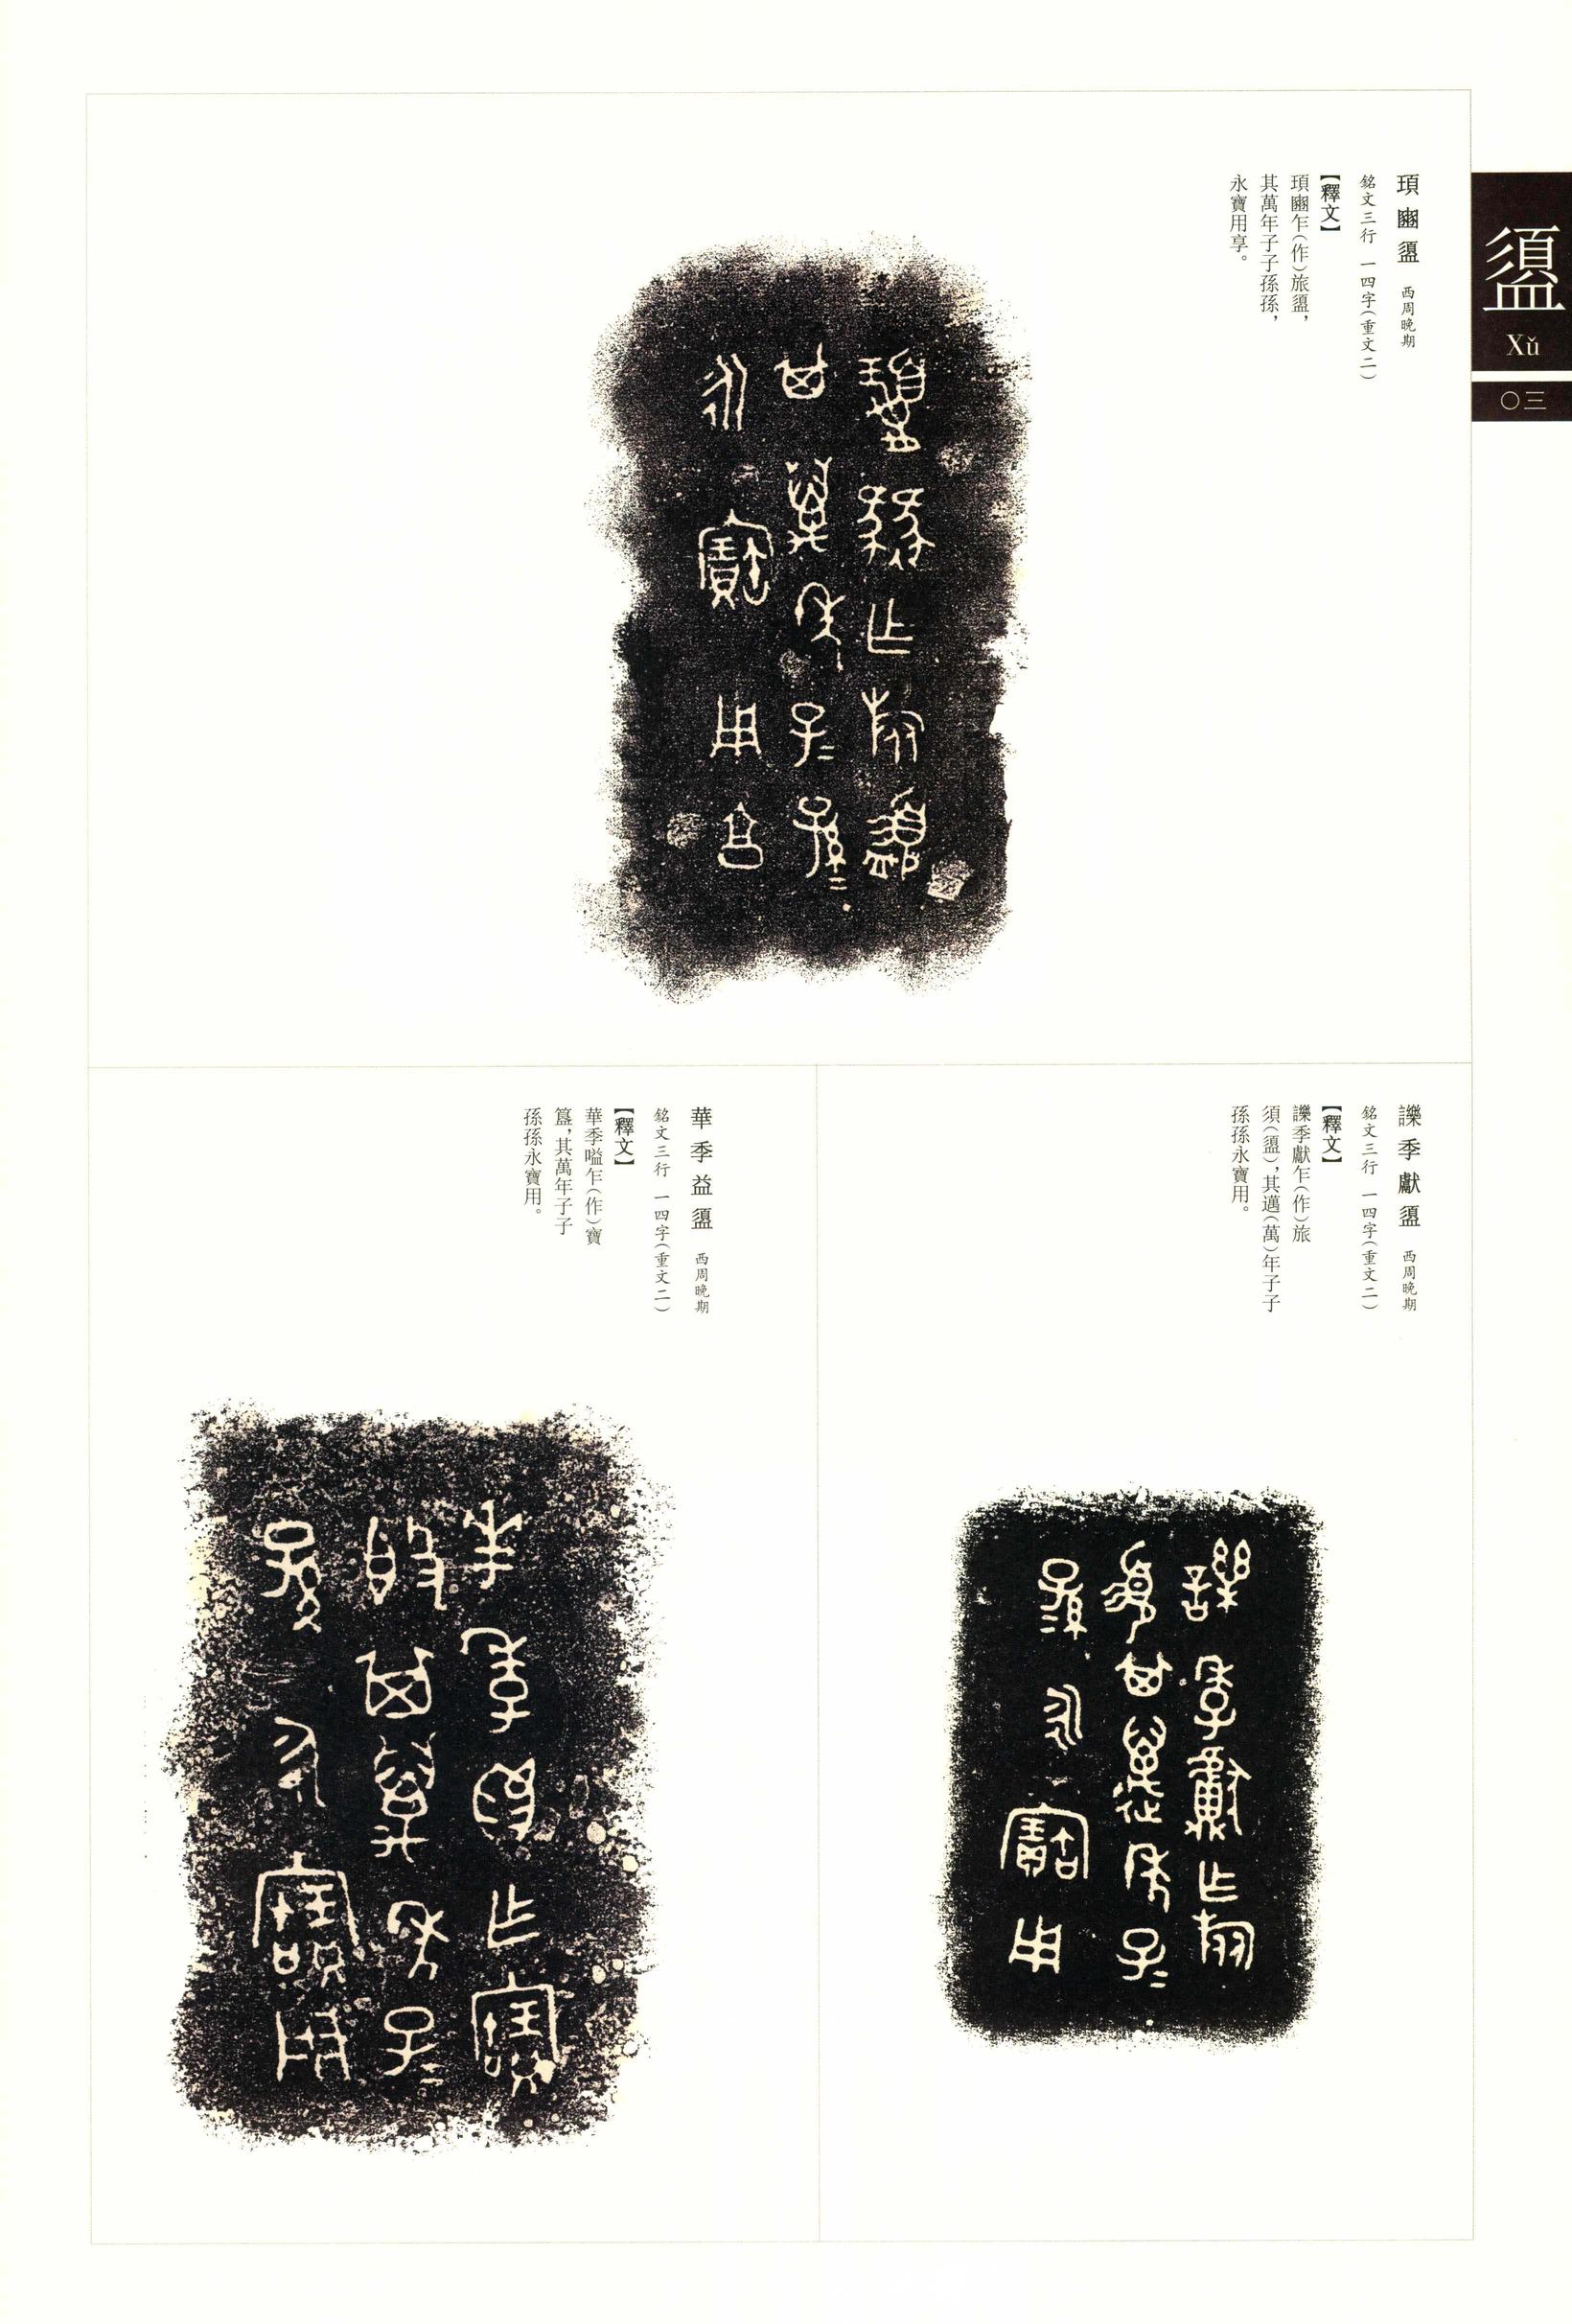 盨
Xǔ
〇三
頊𤔲盨 西周晚期
銘文三行 一四字(重文二)
【釋文】
乍(作)旅盨,
其萬年子子孫孫,
永寶用享。
𧬨季獻盨 西周晚期
銘文三行 一四字(重文二)
【釋文】
季獻乍(作)旅
須(盨),其邁(萬)年子子
孫孫永寶用。
華季益盨 西周晚期
銘文三行 一四字(重文二)
【釋文】
華季嗌乍(作)寶
簋,其萬年子子
孫孫永寶用。